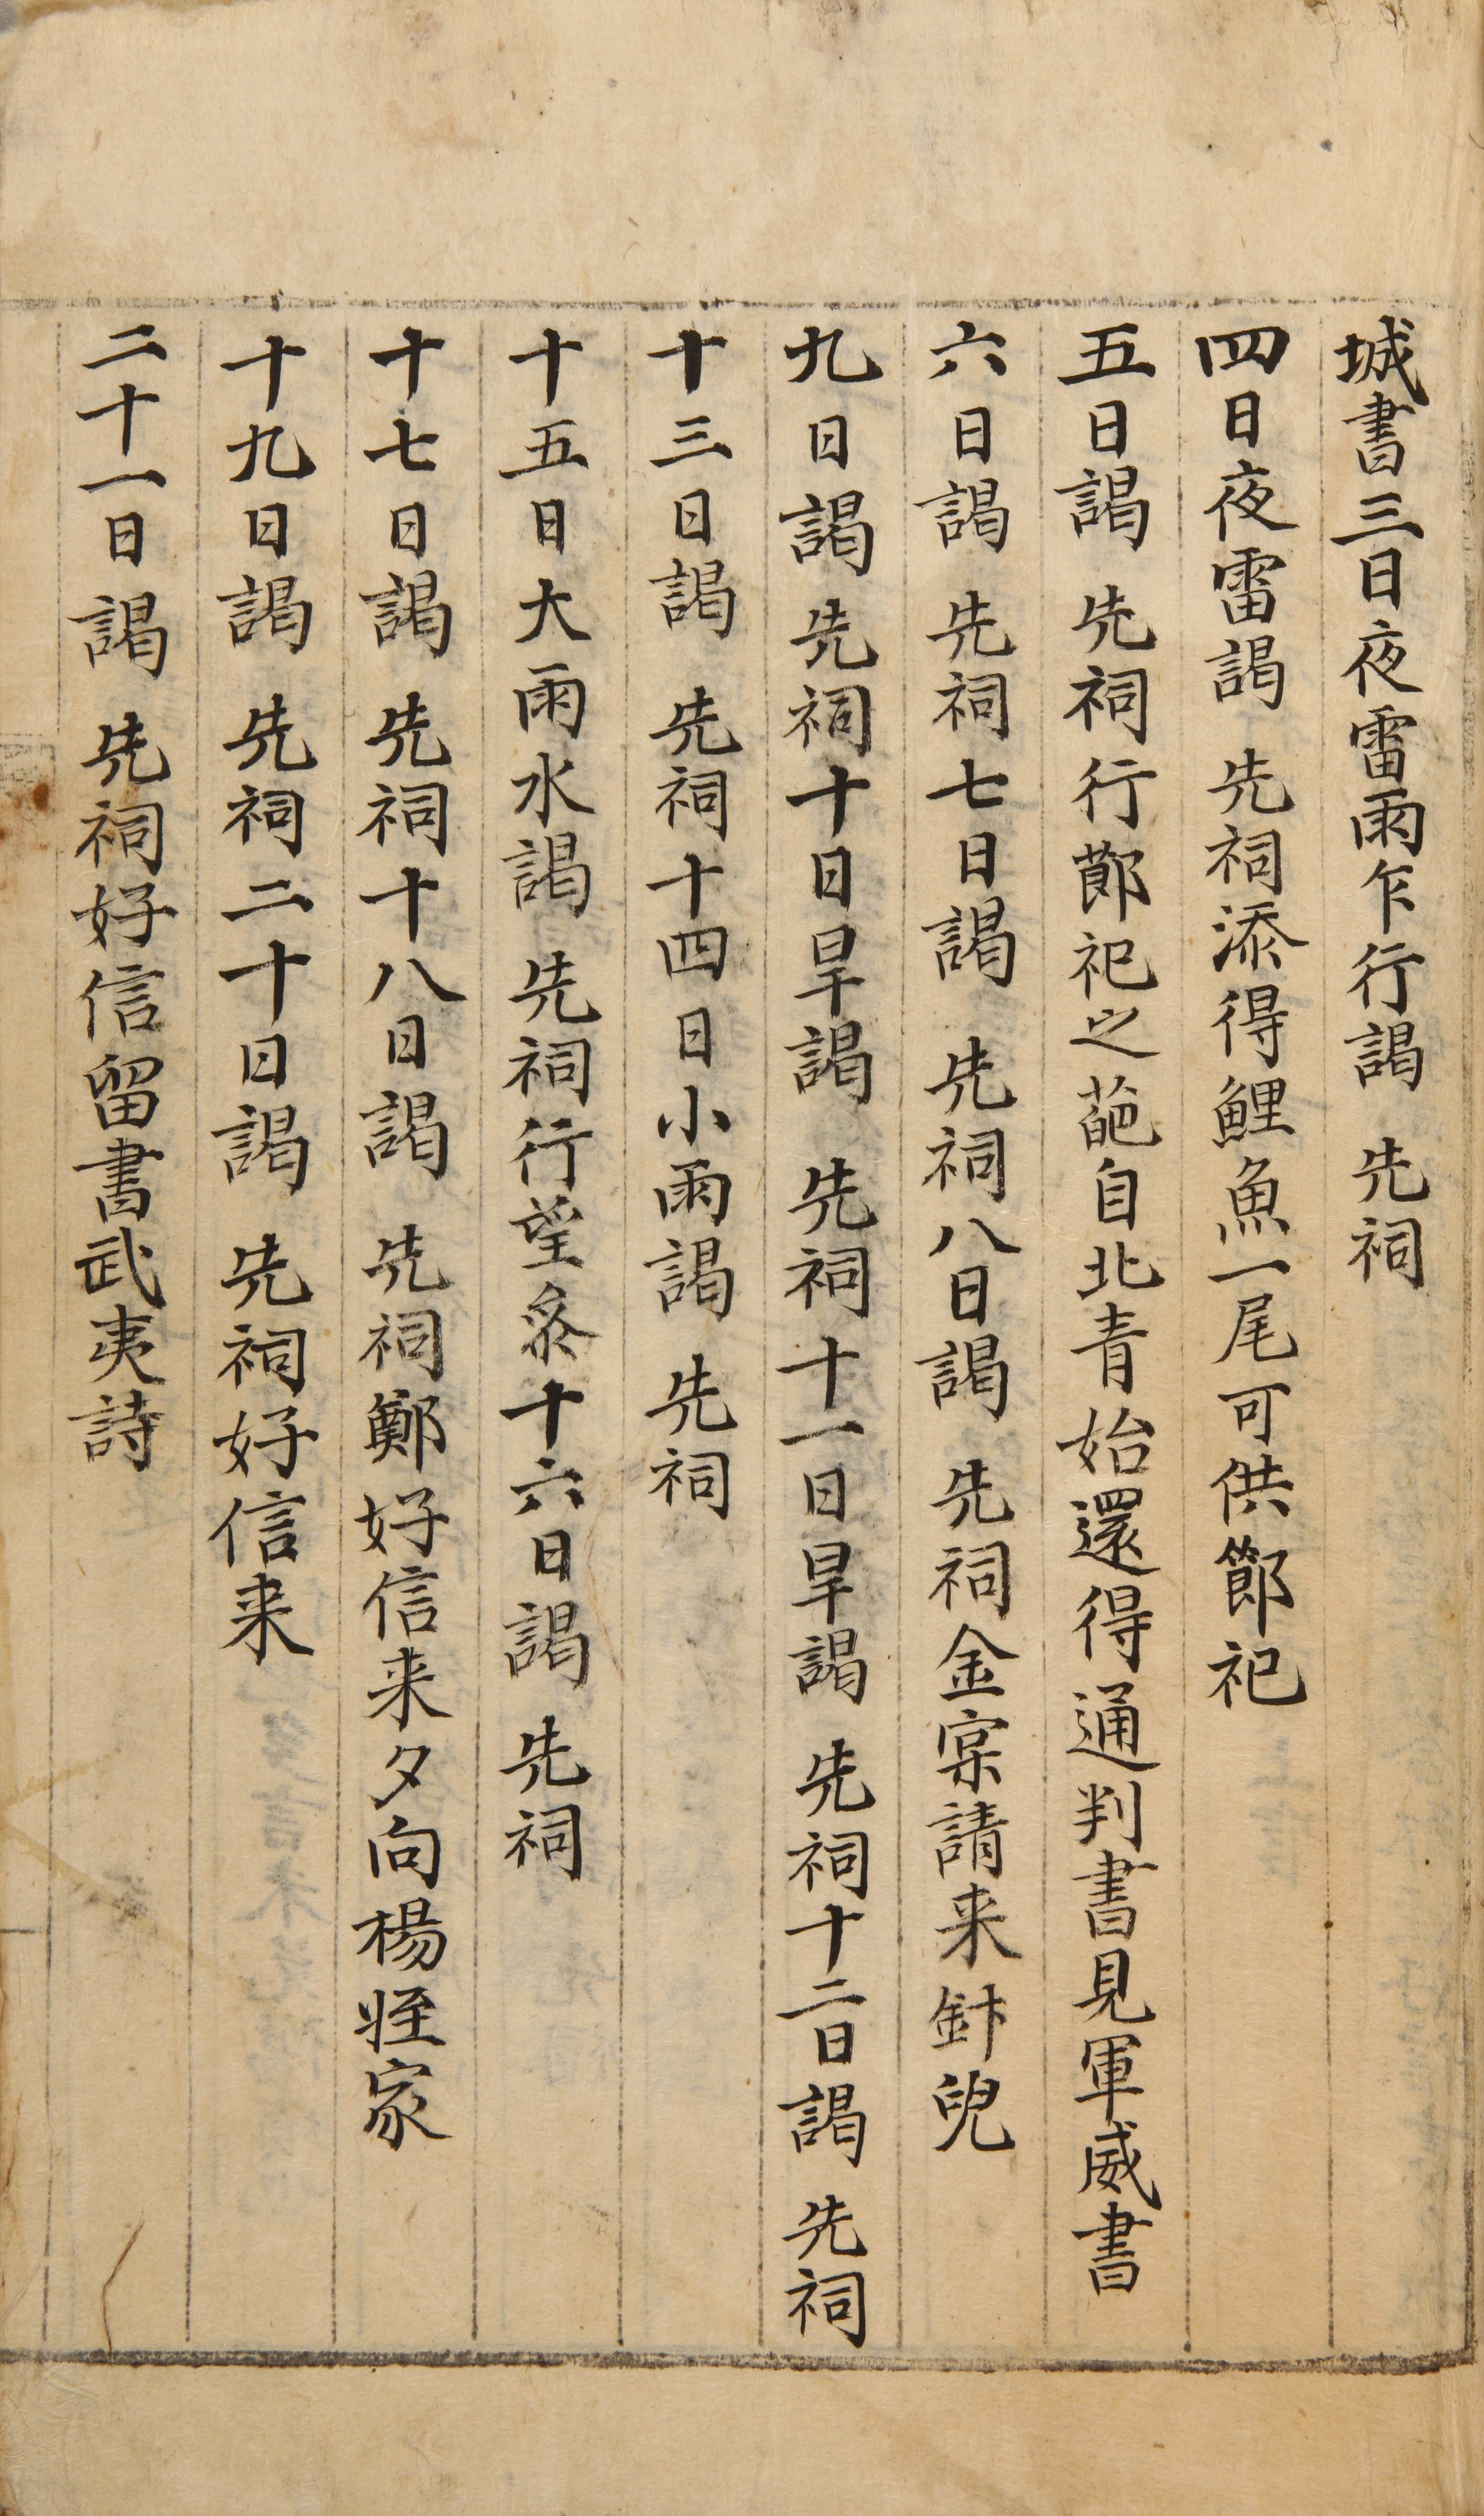 城書三日夜雷雨乍行謁 先祠
四日夜雷謁 先祠添得鯉魚一尾可供節祀
五日謁 先祠行節祀之葩自北青始還得通判書見軍威書
六日謁 先祠七日謁 先祠八日謁 先祠金寀請来針兒
九日謁 先祠十日旱謁 先祠十一日旱謁 先祠十二日謁 先祠
十三日謁 先祠十四日小雨謁 先祠
十五日大雨水謁 先祠行望叅十六日謁 先祠
十七日謁 先祠十八日謁 先祠鄭好信来夕向楊姪家
十九日謁 先祠二十日謁 先祠好信来
二十一日謁 先祠好信留書武夷詩